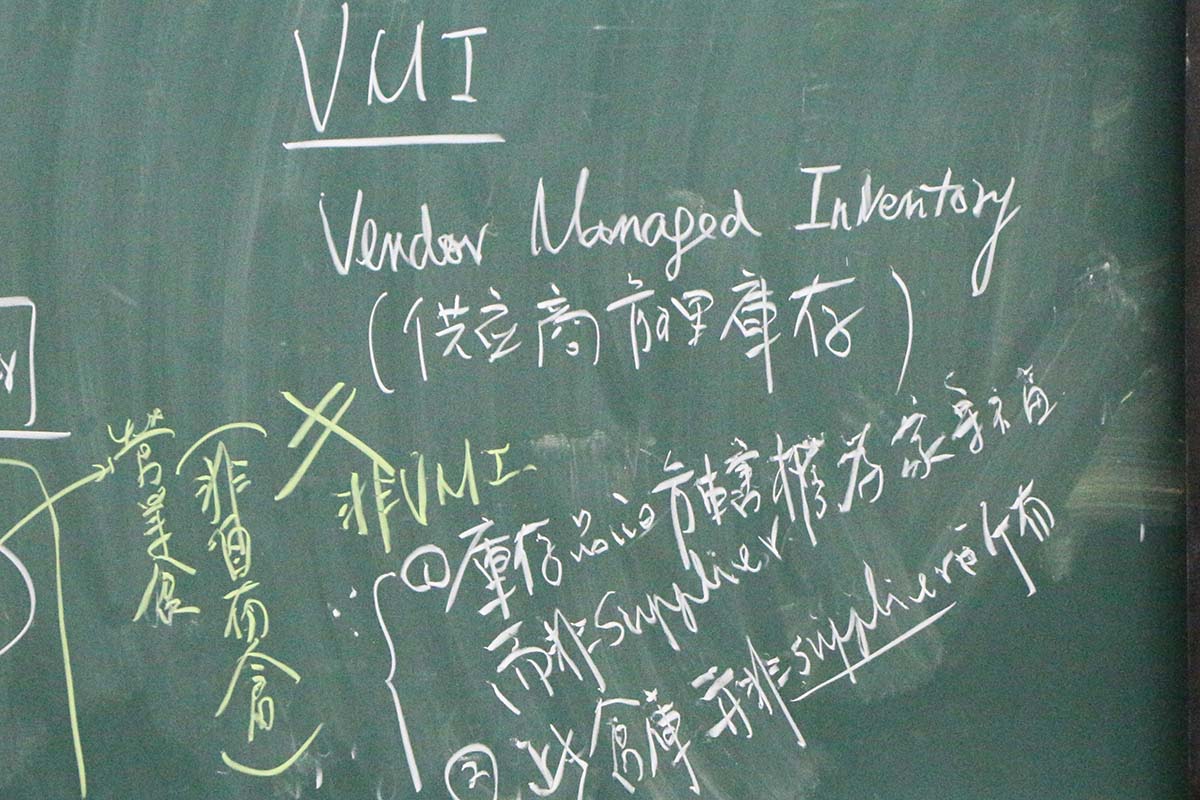 VMI
Vendor Managed Inventory
(供应商管理庫存)
非VMI
營業倉
(非自有倉)
①庫存品的所有權為家樂福
而非supplier
②此倉庫并非supplier所有